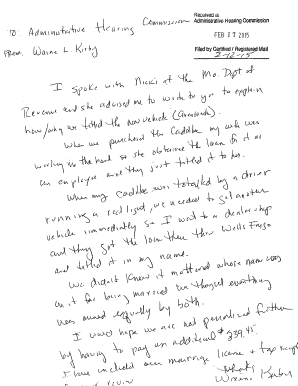 Received at
Administrative Hearing Commission
FEB 27 2015
Filed by Certified / Registered Mail
2-12-15
TO: Administrative Hearing Commission
FROM: Wayne L. Kirby
I spoke with Nicki at the Mo. Dept of
Revenue and she advised me to write to you to explain
how/why we titled the new vehicle
When we purchased the Cadillac my wife was
working in the bank so she obtained the loan on it as
an employee and they just titled it to her.
When my Cadillac was totaled by a driver
running a red light, we needed to get another
vehicle immediately so I went to a dealership
and they got the loan then thru Wells Fargo
and titled it in my name.
We didn't know it mattered whose name was
on it for being married we thought everything
was owned equally by both.
I would hope we are not penalized further
by having to pay an additional $339.45.
I have included our marriage license + tax receipt
Thanks
review